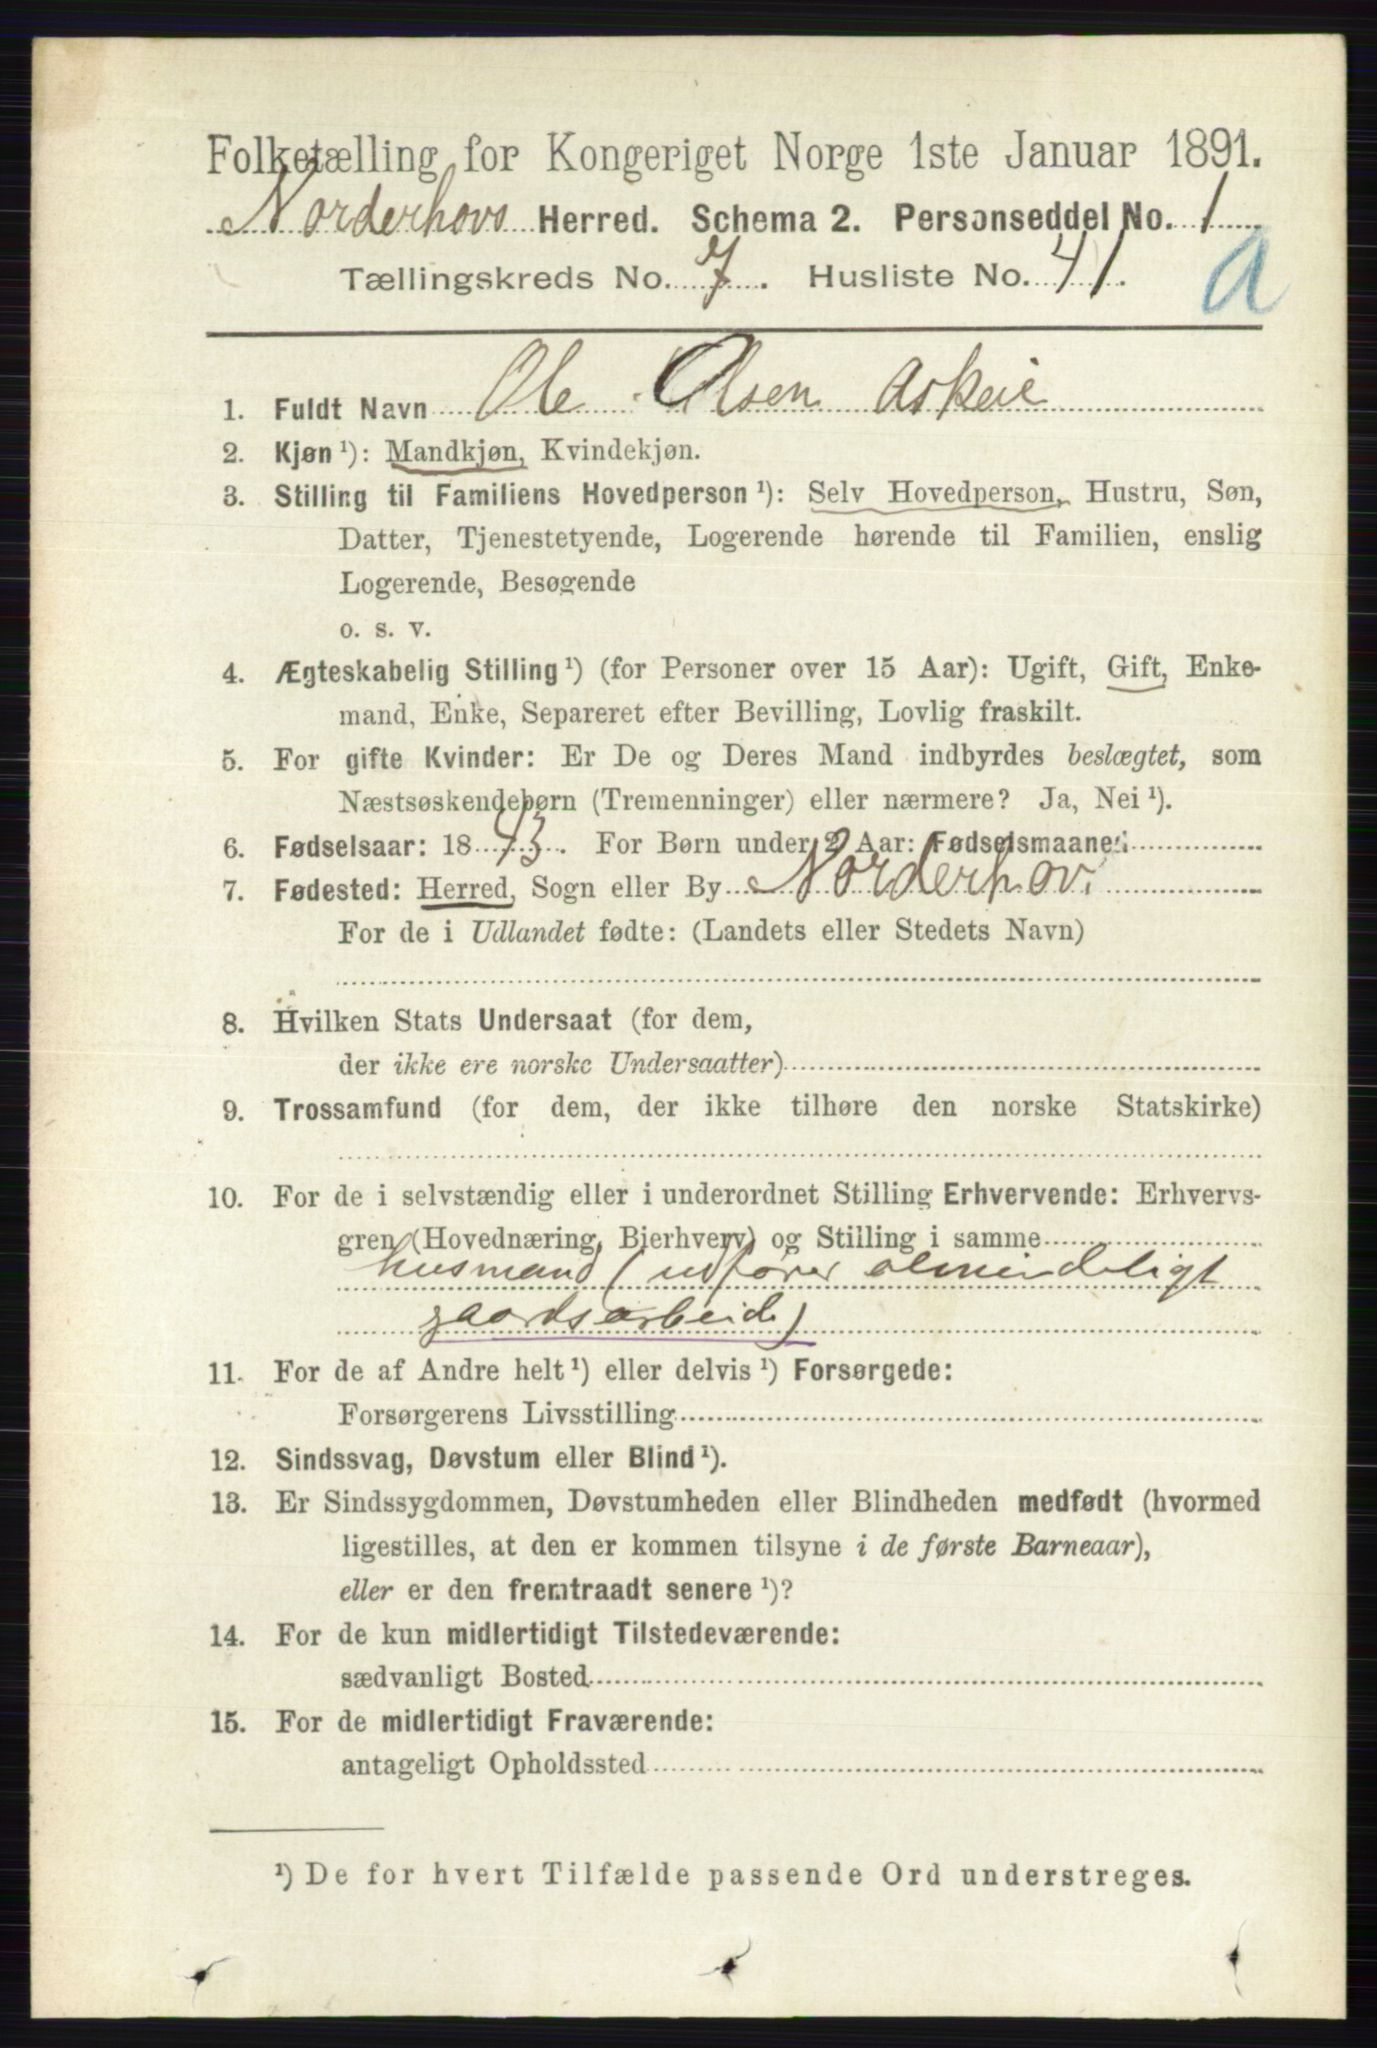 Folketælling for Kongeriget Norge 1ste Januar 1891.
Norderhovs Herred. Schema 2. Personseddel No. 1
Tællingskreds No. 7. Husliste No. 41. A
1. Fuldt Navn Ole Olsen Askeie
2. Kjøn ¹): Mandkjøn, Kvindekjøn.
3. Stilling til Familiens Hovedperson ¹): Selv Hovedperson, Hustru, Søn,
Datter, Tjenestetyende, Logerende hørende til Familien, enslig
Logerende, Besøgende
o. s. v.
4. Ægteskabelig Stilling ¹) (for Personer over 15 Aar): Ugift, Gift, Enke-
mand, Enke, Separeret efter Bevilling, Lovlig fraskilt.
5. For gifte Kvinder: Er De og Deres Mand indbyrdes beslægtet, som
Næstsøskendebørn (Tremenninger) eller nærmere? Ja, Nei ¹).
6. Fødselsaar: 1843. For Børn under 2 Aar: Fødselsmaaned
7. Fødested: Herred, Sogn eller By Norderhov.
For de i Udlandet fødte: (Landets eller Stedets Navn)
8. Hvilken Stats Undersaat (for dem,
der ikke ere norske Undersaatter)
9. Trossamfund (for dem, der ikke tilhøre den norske Statskirke)
10. For de i selvstændig eller i underordnet Stilling Erhvervende: Erhvervs-
gren (Hovednæring, Bierhverv) og Stilling i samme
husmand (udfører almindeligt
gaardsarbeide)
11. For de af Andre helt ¹) eller delvis ¹) Forsørgede:
Forsørgerens Livsstilling
12. Sindssvag, Døvstum eller Blind ¹).
13. Er Sindssygdommen, Døvstumheden eller Blindheden medfødt (hvormed
ligestilles, at den er kommen tilsyne i de første Barneaar),
eller er den fremtraadt senere ¹)?
14. For de kun midlertidigt Tilstedeværende:
sædvanligt Bosted
15. For de midlertidigt Fraværende:
antageligt Opholdssted
¹) De for hvert Tilfælde passende Ord understreges.